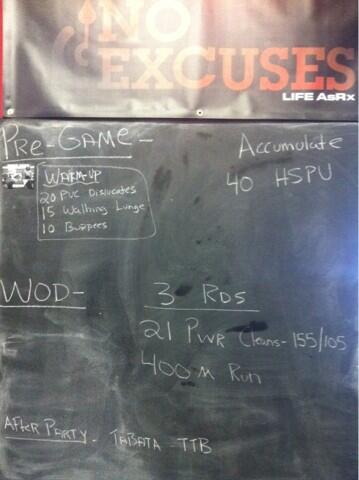 NO
EXCUSES
LIFE AsRx
PRE-GAME-
Accumulate
40 HSPU
WARM-UP
20 PVC Dislocates
15 Walking Lunge
10 Burpees
WOD-
3 RDS
21 PWR Cleans-155/105
400m Run
AFTER PARTY - TABATA - TTB